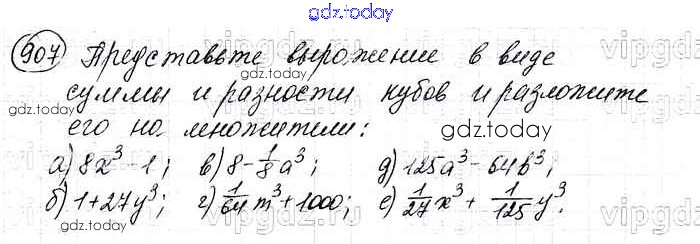 gdz.today
907 Представьте выражение в виде
gdz.today
суммы и разности кубов и разложите
его на множители: gdz.today
а) 8x³ - 1; в) 8 - 1/8 a³; д) 125a³ - 64b³;
б) 1 + 27y³; г) 1/64 m³ + 1000; е) 1/27 x³ + 1/125 y³.
gdz.today
vipgdz
vipgdz
vipgdz